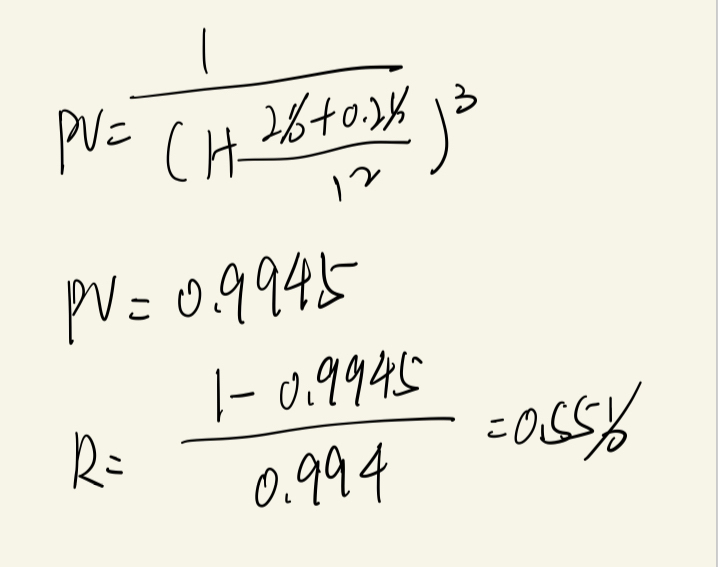 PV = 1 / (1 + (2% + 0.2%) / 12)^3
PV = 0.9945
R = (1 - 0.9945) / 0.994 = 0.55%